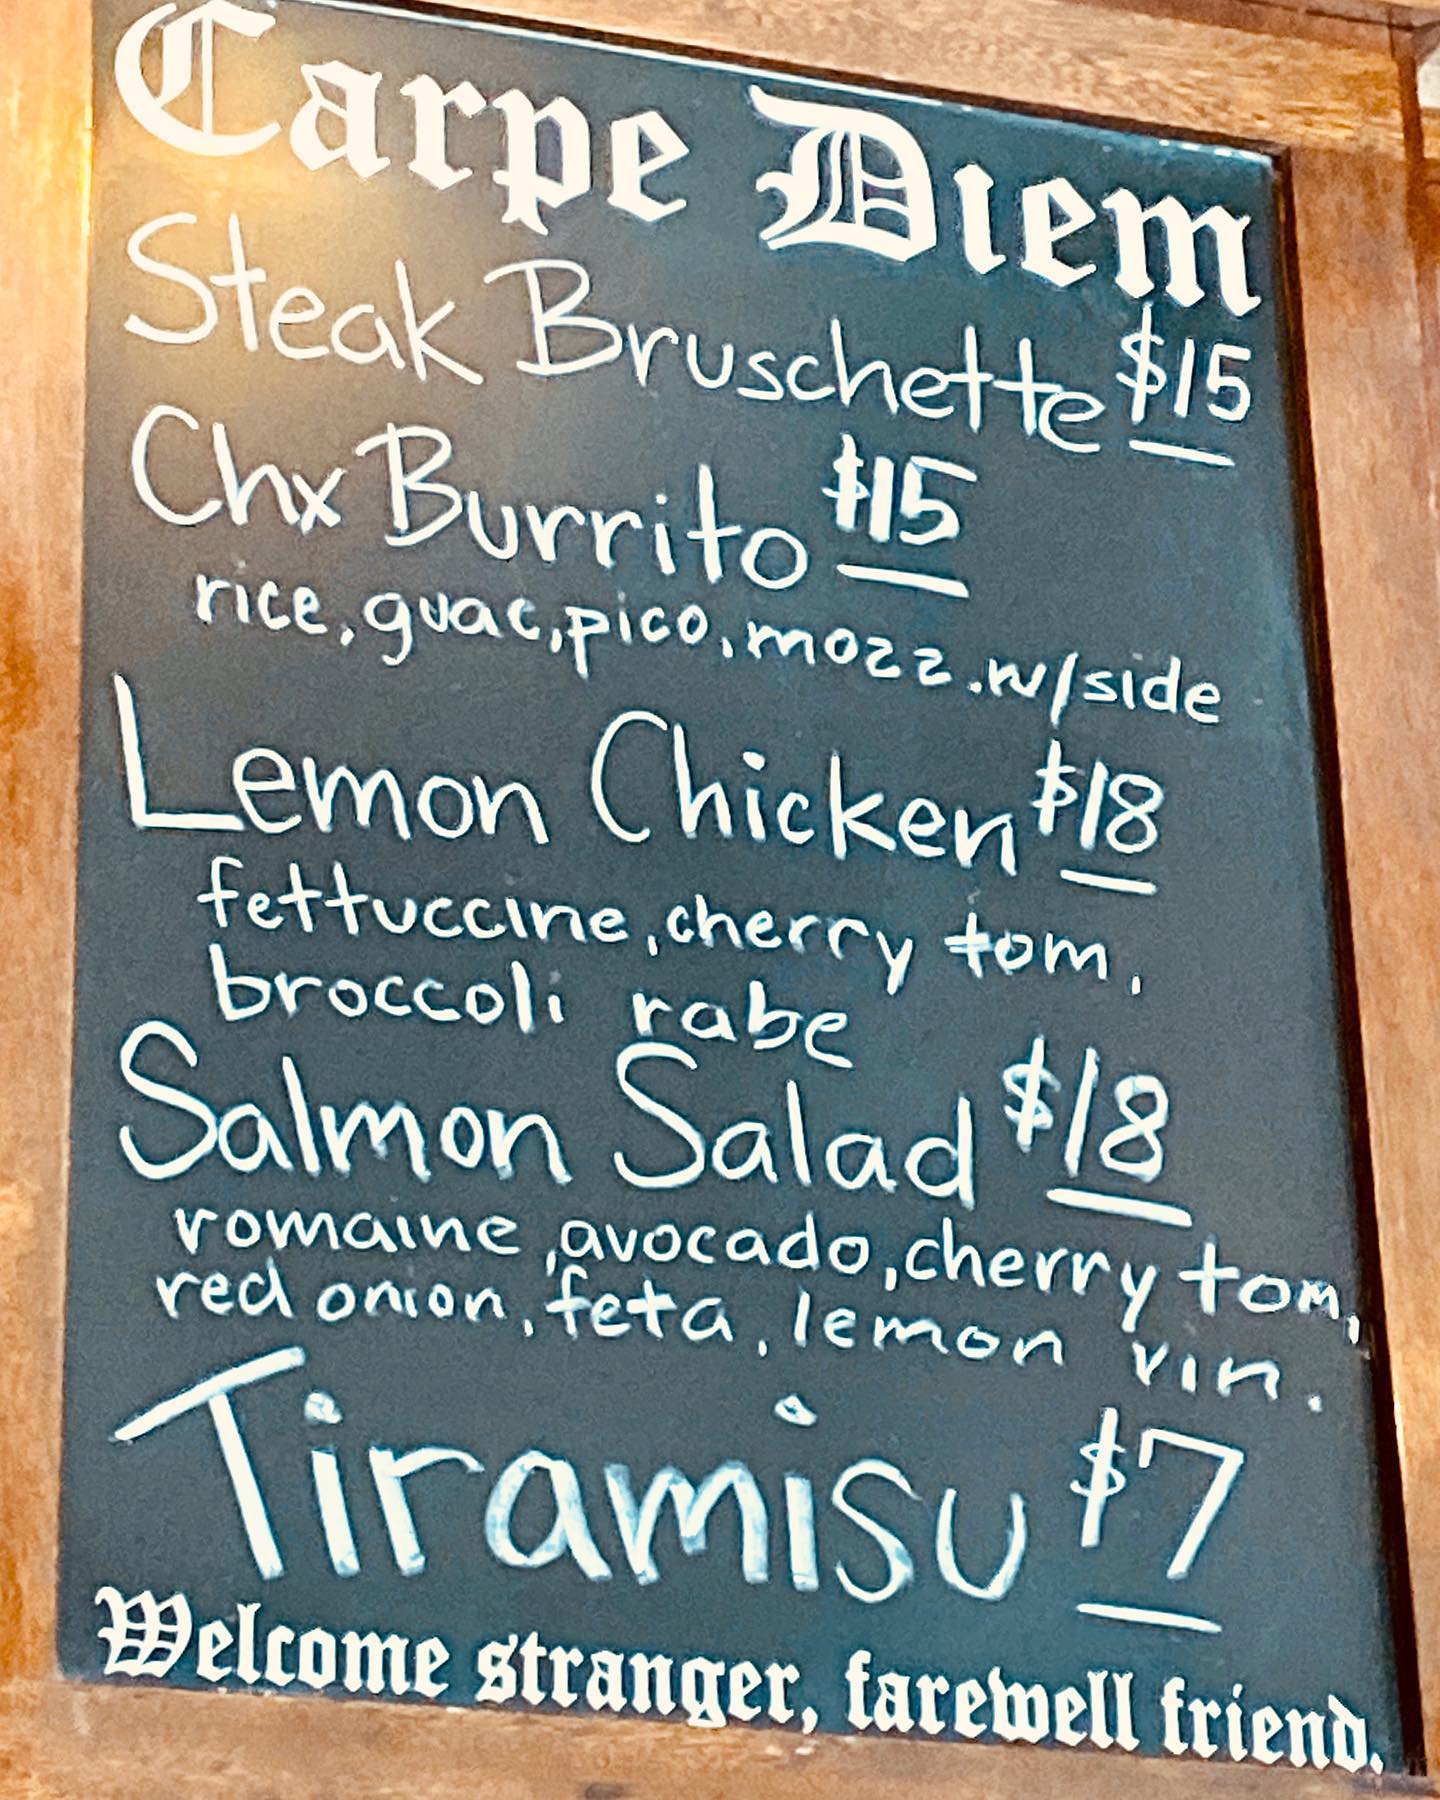 Carpe Diem
Steak Bruschette $15
Chx Burrito $15
rice, guac, pico, mozz. w/side
Lemon Chicken $18
fettuccine, cherry tom,
broccoli rabe
Salmon Salad $18
romaine, avocado, cherry tom,
red onion, feta, lemon vin.
Tiramisu $7
Welcome stranger, farewell friend.